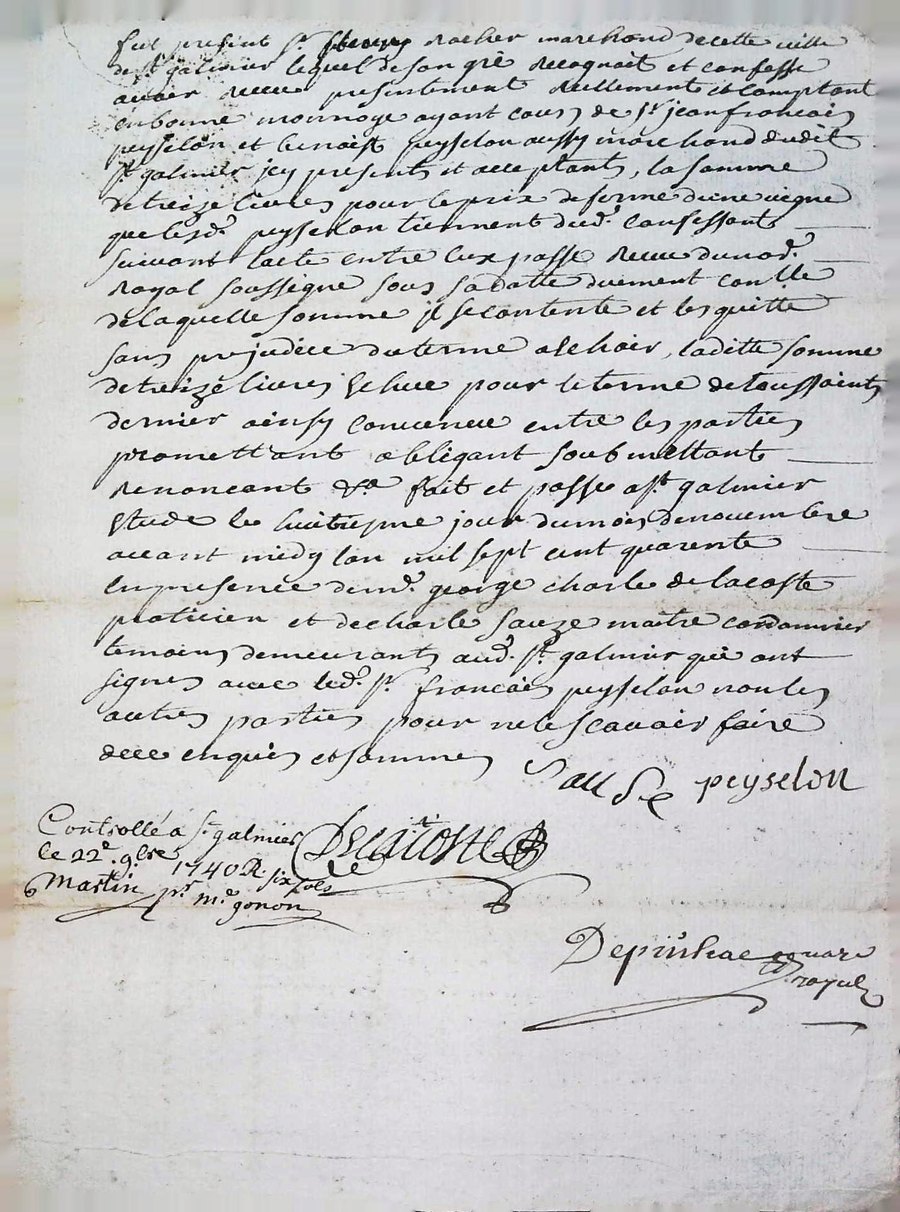 fut present Sr. Rocher marchand de cette ville
de St galmier lequel de son gré recognoit et confesse
avoir receu presentement reellement et comptant
en bonne monnoye ayant cours de Sr. jean francois
peyselon et benoist peyselon aussy marchand dudit
St. galmier jcy presents et acceptants, la somme
de treize livres pour le prix de ferme dune vigne
que lesd. peyselon tiennent dud. confessant
suivant lacte entre eux passé receu du nore.
Royal soussigne sous sa datte duement conllé
de laquelle somme jl se contente et les quitte
sans prejudice du terme a eschoir, laditte somme
de treize livres Eschue pour le terme de toussaints
dernier ainsy convenue entre les parties
promettant obligant soubmettant
Renonceant &a fait et passé a St. galmier
Etude le huitieme jour du mois de novembre
avant midy lan mil sept cent quarente
en presence de mr. george charle de lacoste
praticien et de charle sauze maitre cordonnier
temoins demeurants aud. St. galmier qui ont
signes avec led. Sr. francois peyselon non les
autres parties pour ne le scavoir faire
de ce enquis et sommes
Sauze peyselon
Controllé a St galmier
le 22e. 9bre 1740 R. six sols
Martin pr mr. gonon
Delacoste
Depinhac notaire
royal